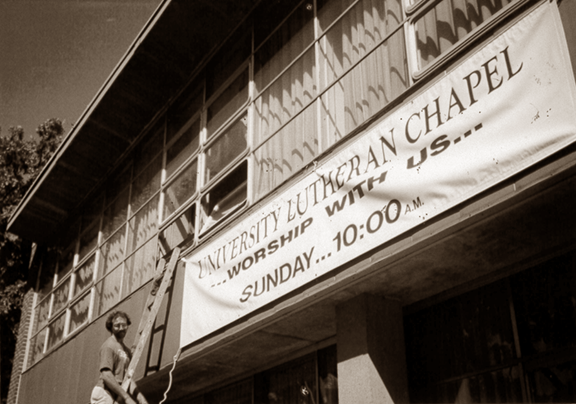 UNIVERSITY LUTHERAN CHAPEL
...WORSHIP WITH US...
SUNDAY...10:00 A.M.